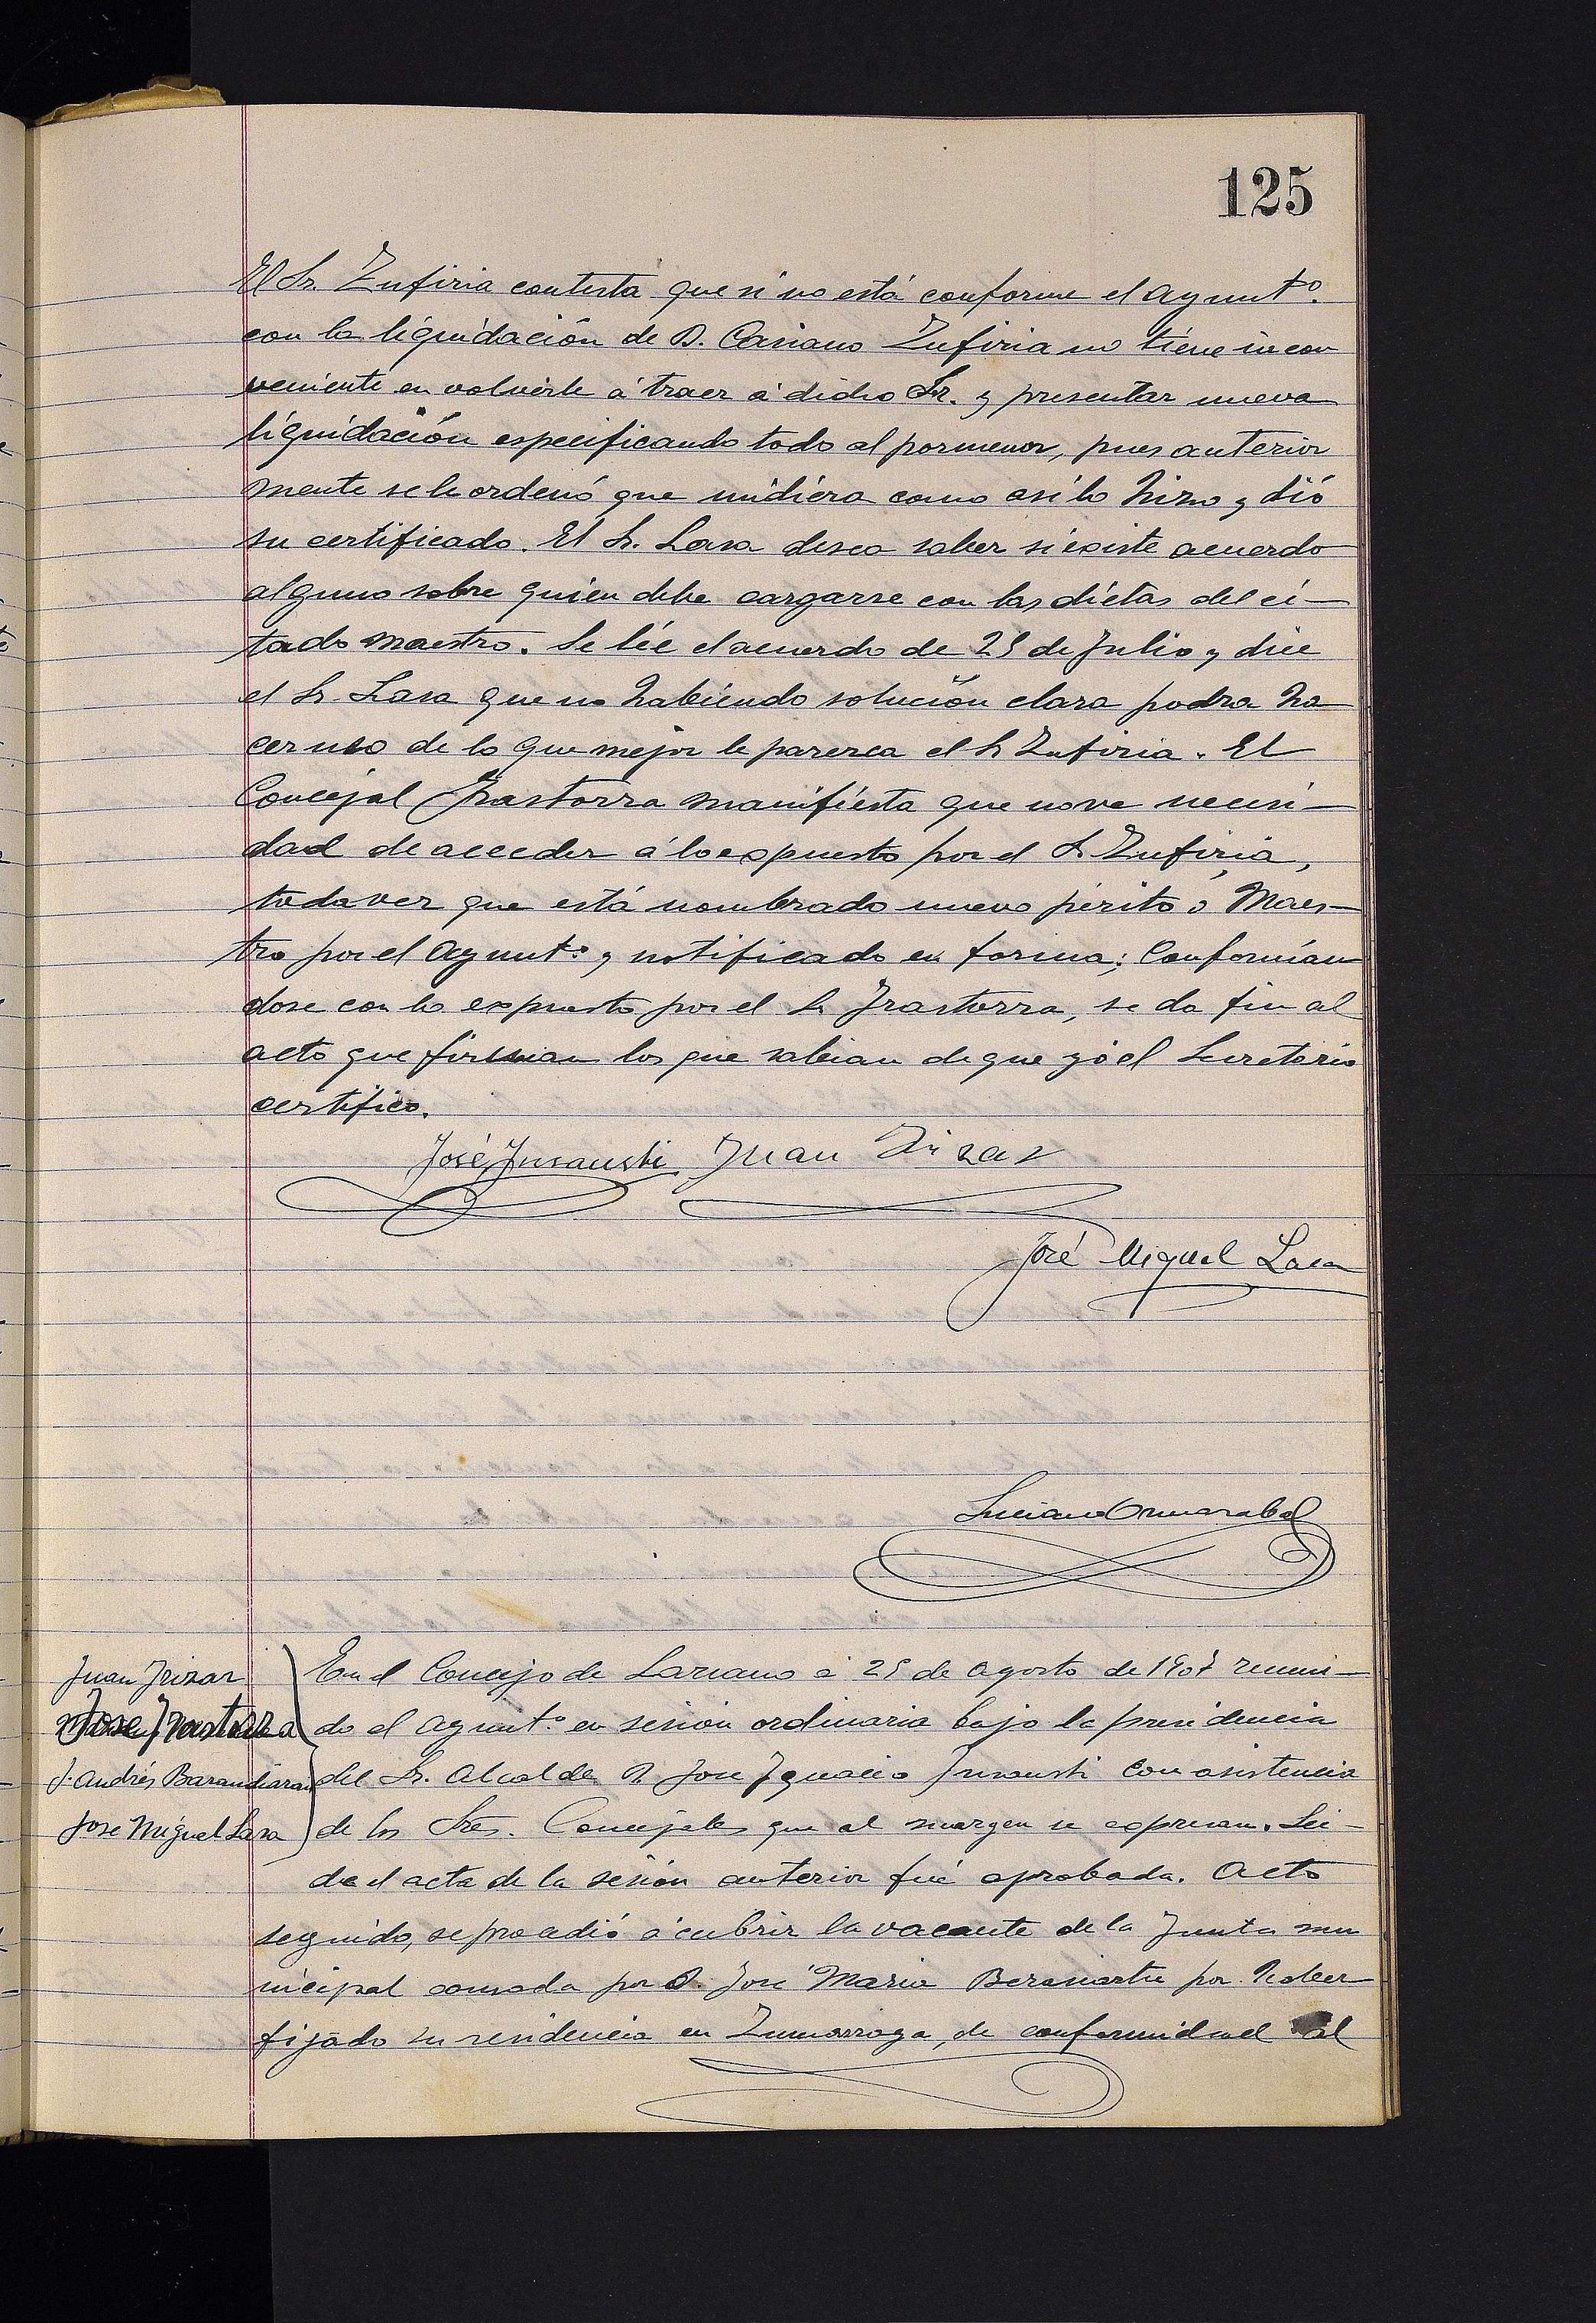 125
El Sr. Zufiria contesta que si no está conforme el Ayuntº.
con la liquidación de D. Casiano Zufiria no tiene incon
veniente en volverle á traer á dicho Sr. y presentar nueva
liquidación especificando todo al pormenor, pues anterior
mente se le ordenó que midiera como asi lo hizo y dió
su certificado. El Sr. Lasa desea saber si existe acuerdo
alguno sobre quien debe cargarse con las dietas del ci-
tado maestro. Se lée el acuerdo de 25 de Julio y dice
el Sr. Lasa que no habiendo solución clara podra ha
cer uso de lo que mejor le parezca el Sr Zufiria. El
Concejal Irastorza manifiesta que no ve necesi-
dad de acceder á lo expuesto por el Sr Zufiria,
toda vez que está nombrado nuevo périto ó Maes-
tro por el Ayuntº y notificado en forma; Conformán
dose con lo expuesto por el Sr Irastorza, se da fin al
acto que firman los que sabian de que yo el Secretario
certifico.
José Insausti Juan Irizar
José Miguel Lasa
Luciano Ormazabal
Juan Irizar
Jose Irastorza
J. Andrés Barandiaran
Jose Miguel Lasa
En el Concejo de Lazcano á 25 de Agosto de 1907 reuni-
do el Ayuntº en sesion ordinaria bajo la presidencia
del Sr. Alcalde D Jose Ignacio Insausti con asistencia
de los Sres. Concejales que al margen se expresan. Lei-
da el acta de la sesión anterior fué aprobada. Acto
seguido, se procedió á cubrir la vacante de la Junta mu
nicipal causada por D. José Maria Berasiartu por haber
fijado su residencia en Zumarraga, de conformidad al